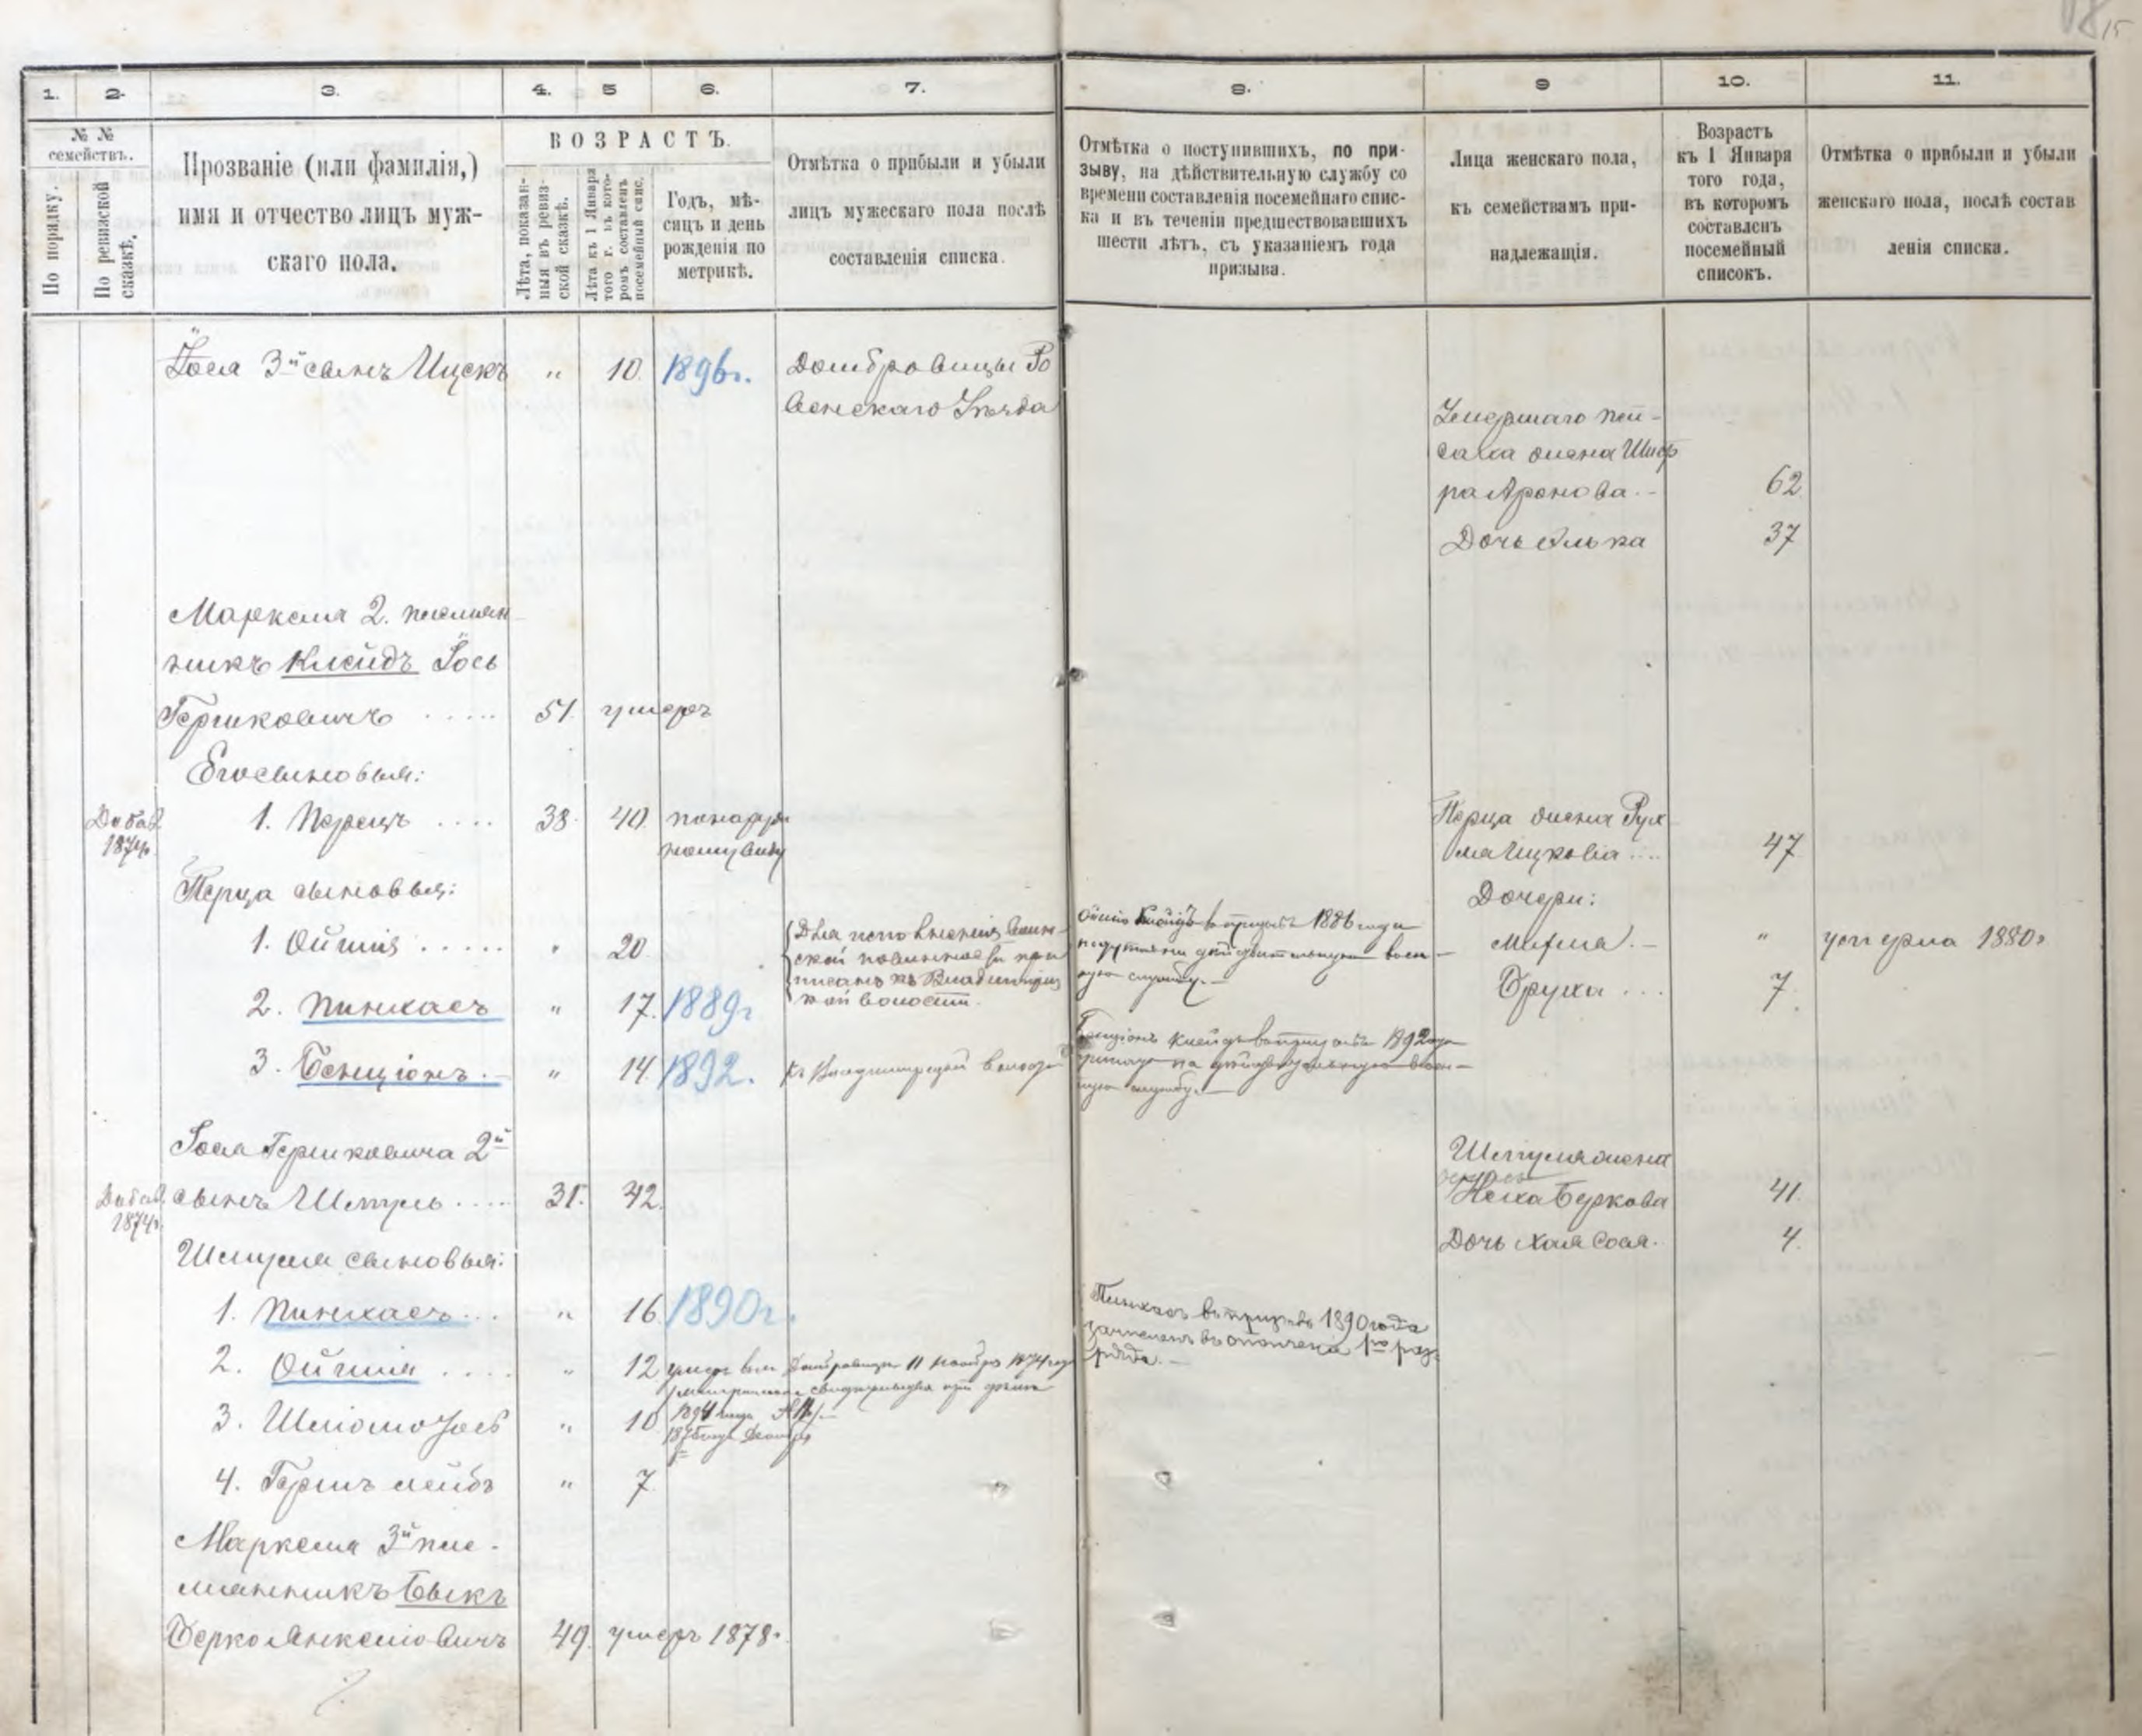 15
1. 2. 3. 4. 5 6. 7. 8. 9 10. 11.
№ № семействъ.
По порядку.
По ревизской сказкѣ.
Прозваніе (или фамилія,)
имя и отчество лицъ муж-
скаго пола.
ВОЗРАСТЪ.
Лѣта, показан-
ныя въ ревиз-
ской сказкѣ.
Лѣта къ 1 Января
того г. въ кото-
ромъ составленъ
посемейный спис.
Годъ, мѣ-
сяцъ и день
рожденія по
метрикѣ.
Отмѣтка о прибыли и убыли
лицъ мужескаго пола послѣ
составленія списка.
Отмѣтка о поступившихъ, по при-
зыву, на дѣйствительную службу со
времени составленія посемейнаго спис-
ка и въ теченіи предшествовавшихъ
шести лѣтъ, съ указаніемъ года
призыва.
Лица женскаго пола,
къ семействамъ при-
надлежащія.
Возрастъ
къ 1 Января
того года,
въ которомъ
составленъ
посемейный
списокъ.
Отмѣтка о прибыли и убыли
женскаго пола, послѣ состав
ленія списка.
Іося 3й сынъ Ицекъ " 10 1896г. Домбровицы Ро
венскаго Уѣзда
Умершаго Пей-
саха жена Шиф
ра Аронова.- 62
Дочь Элька 37
Маркеля 2. племян
никъ Клейдъ Іось
Гершковичъ ..... 51. умеръ
Его сыновья:
Добав. 1874г. 1. Перецъ .... 38. 40. по наруж
ному виду
Перца жена Рух
ля Ицкова .... 47
Перца сыновья:
Дочери:
1. Ойшія ..... " 20. Для исполненія воин-
ской повинности при
писанъ къ Владимірец
кой волости.
въ призывѣ 1886 года
службу.-
Малка.- " умерла 1880г
2. Пинхасъ " 17. 1889г
Бруха ... 7.
3. Бенціонъ.- " 14. 1892. къ Владимірецкой волости
Бенціонъ Клейдъ въ призывѣ 1892 года
принятъ на дѣйствительную воен-
ную службу.-
Іося Гершковича 2й
Добав. 1874г. сынъ Шмуль .... 31. 42.
Шмуля жена
Неха Беркова 41.
Дочь Хая Сося. 4.
Шмуля сыновья:
1. Пинхасъ... " 16. 1890г.
Пинхасъ въ призывѣ 1890 года
зачисленъ въ ополченіе 1го раз-
ряда.-
2. Ойшія .... " 12 умеръ въ м. Домбровицы 11 ноября 1874 года
3. Шліомо Іось " 10
4. Гершъ Лейбъ " 7.
Маркеля 3й пле-
мянникъ Быкъ
Берко Янкеліовичъ 49. умеръ 1878г.